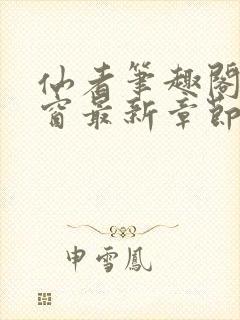 仙者笔趣阁
窗最新章节
申雪凤